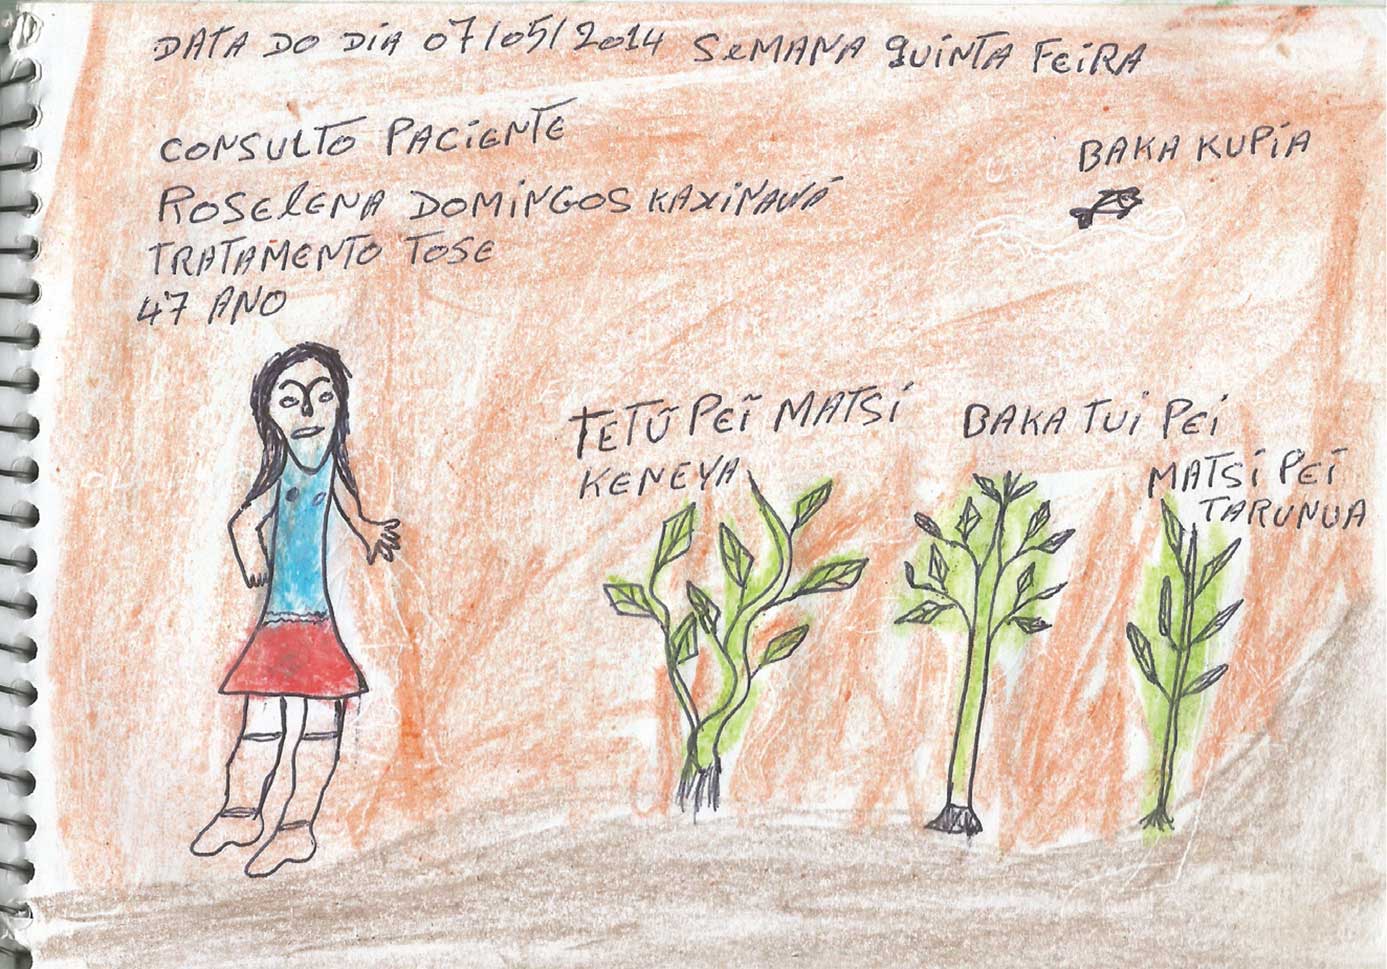 DATA DO DIA 07/05/2014 SEMANA QUINTA FEIRA
CONSULTO PACIENTE
ROSELENA DOMINGOS KAXINAWÁ
TRATAMENTO TOSE
47 ANO
BAKA KUPIA
TETŨ PEĨ MATSI
KENEYA
BAKA TUI PEI
MATSI PEĨ
TARUNUA